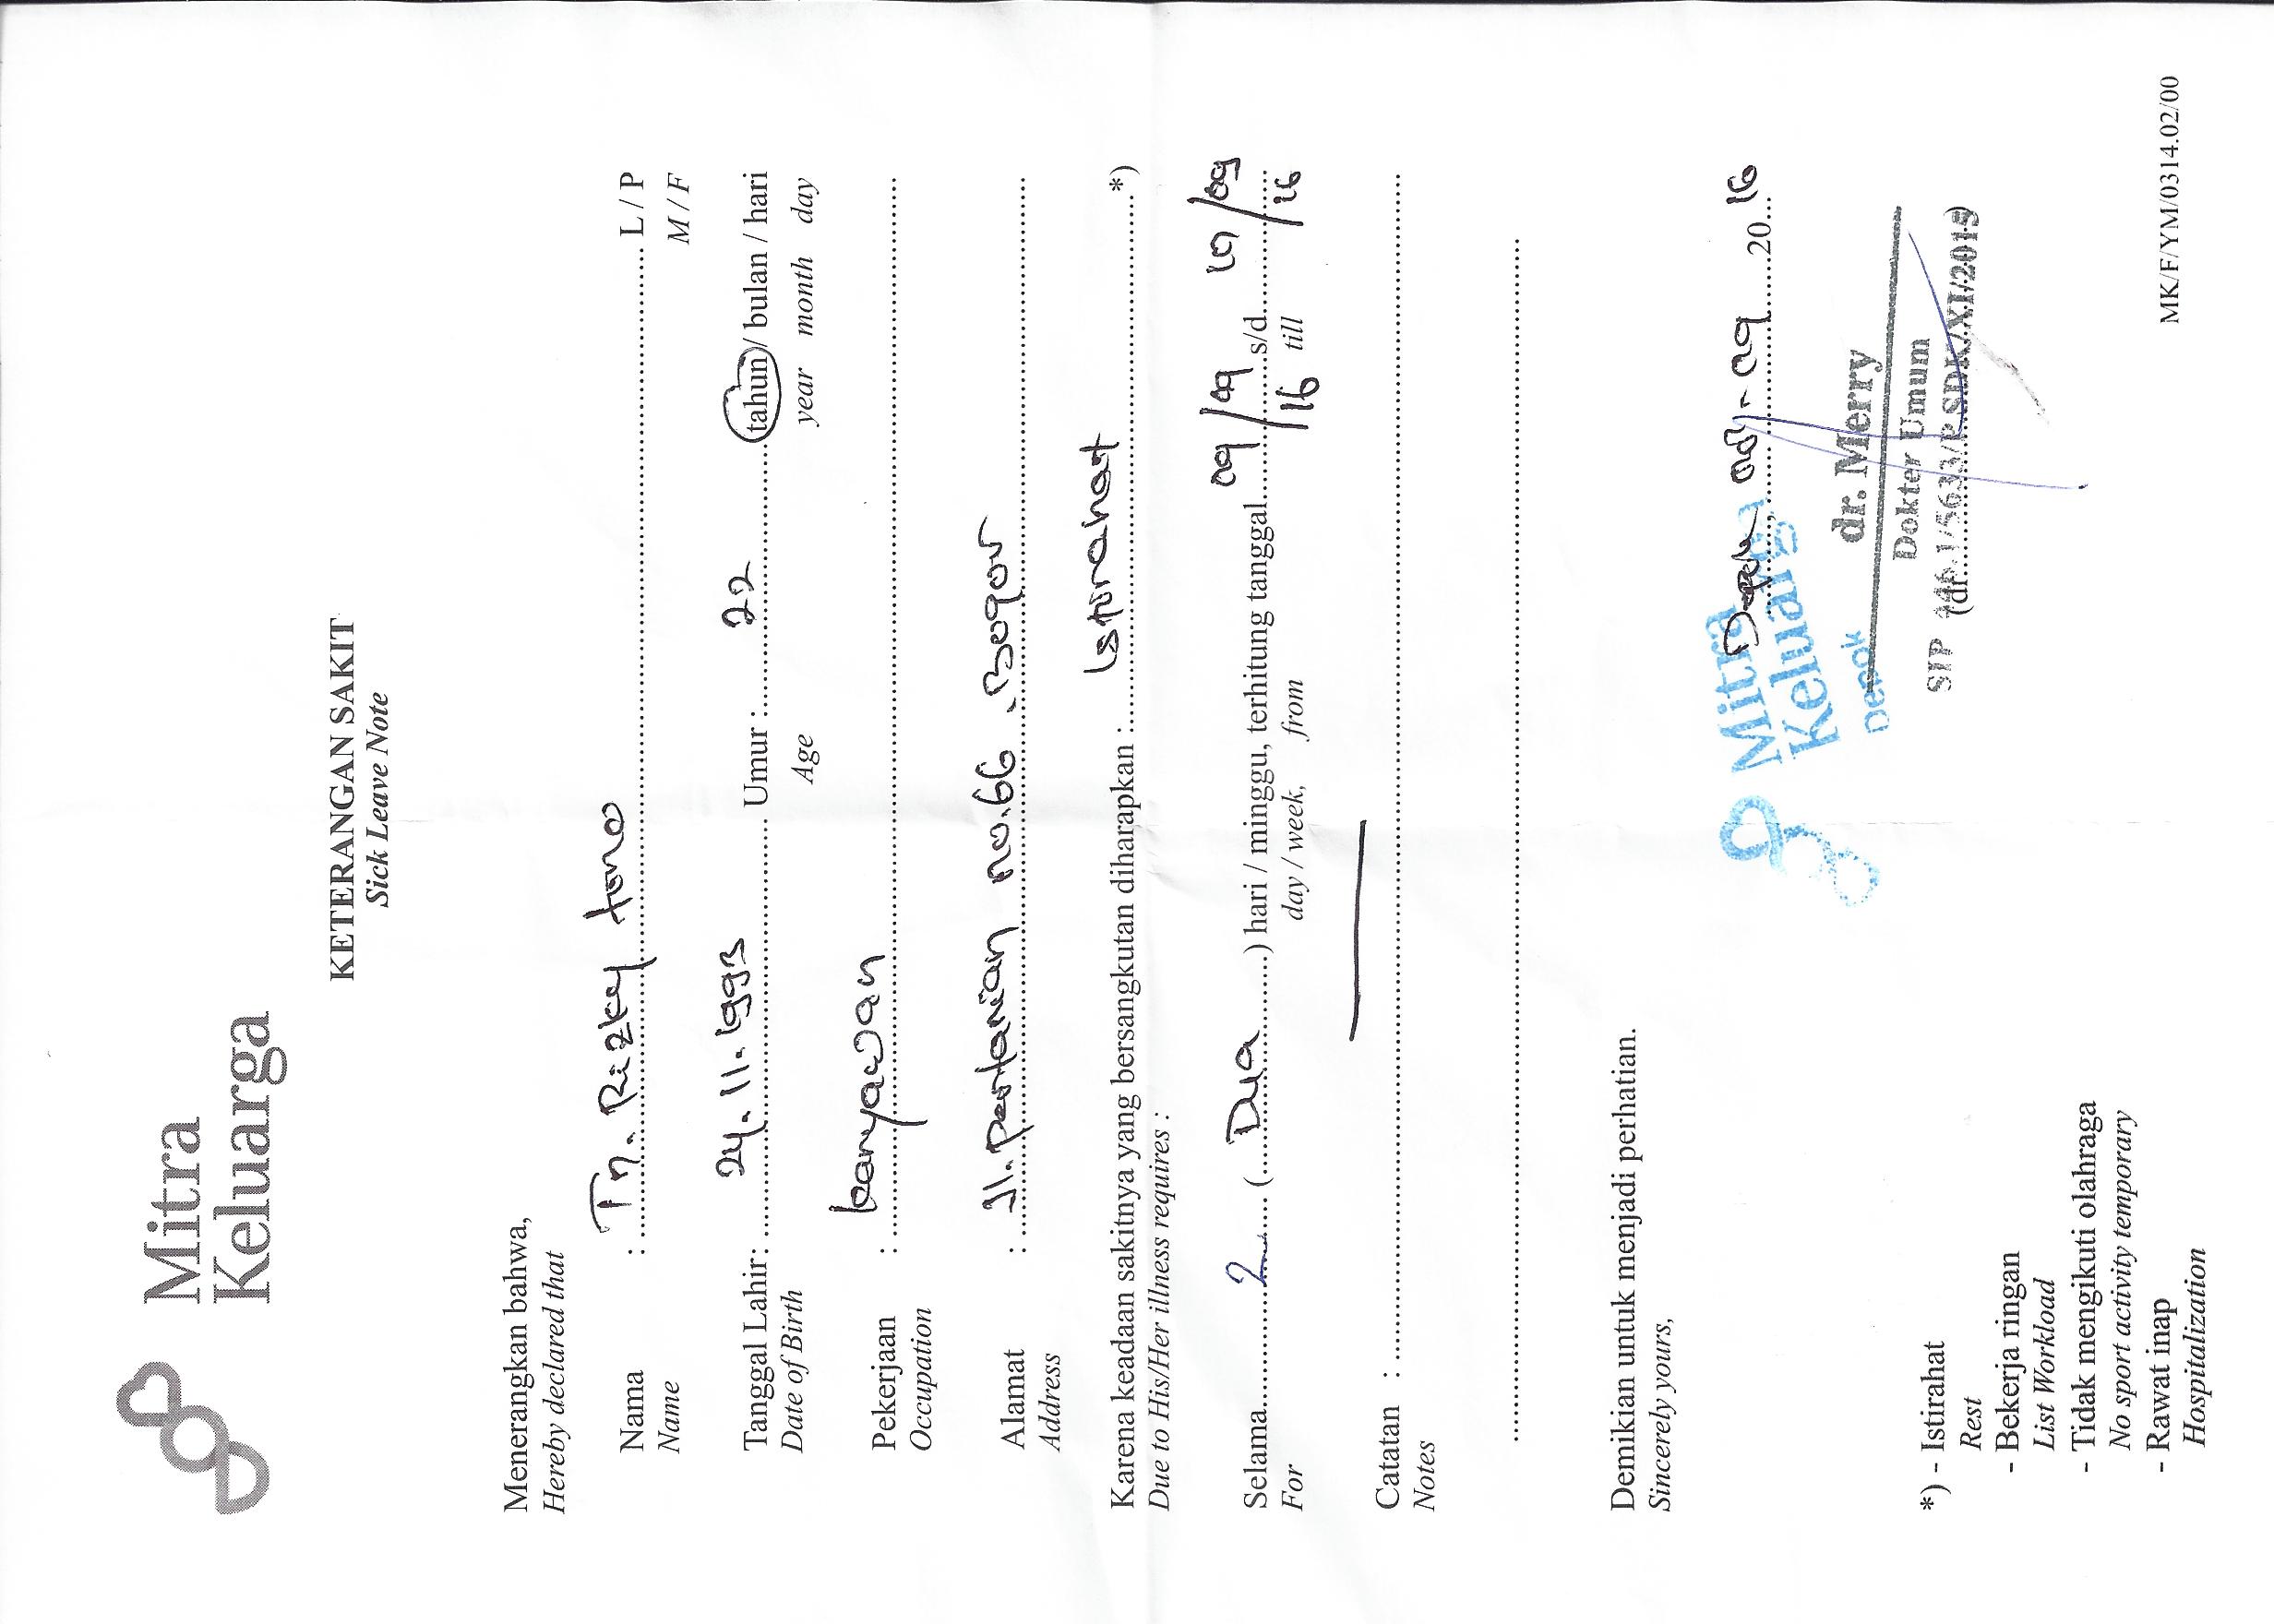 Mitra
Keluarga
KETERANGAN SAKIT
Sick Leave Note
Menerangkan bahwa,
Hereby declared that
Nama : Tn. Rizky tomo L / P
Name M / F
Tanggal Lahir: 24.11.1993 Umur : 22 tahun / bulan / hari
Date of Birth Age year month day
Pekerjaan : karyawan
Occupation
Alamat : Jl. Pertanian no.66 . Bogor
Address
Karena keadaan sakitnya yang bersangkutan diharapkan : Istirahat *)
Due to His/Her illness requires :
Selama 2 ( Dua ) hari / minggu, terhitung tanggal 09/09/16 s/d 10/09/16
For day / week, from till
Catatan :
Notes
Demikian untuk menjadi perhatian.
Sincerely yours,
Depok, 09 - 09 20 16
Mitra
Keluarga
Depok
dr. Merry
Dokter Umum
SIP
(dr. )
*) - Istirahat
Rest
- Bekerja ringan
List Workload
- Tidak mengikuti olahraga
No sport activity temporary
- Rawat inap
Hospitalization
MK/F/YM/0314.02/00